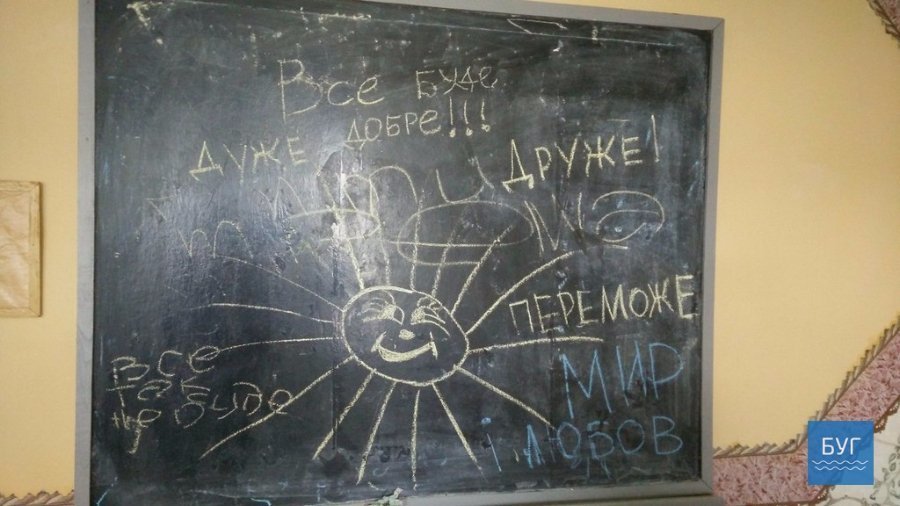 Все буде
дуже добре!!!
друже!
ПЕРЕМОЖЕ
МИР
і ЛЮБОВ
Все
не буде
БУГ